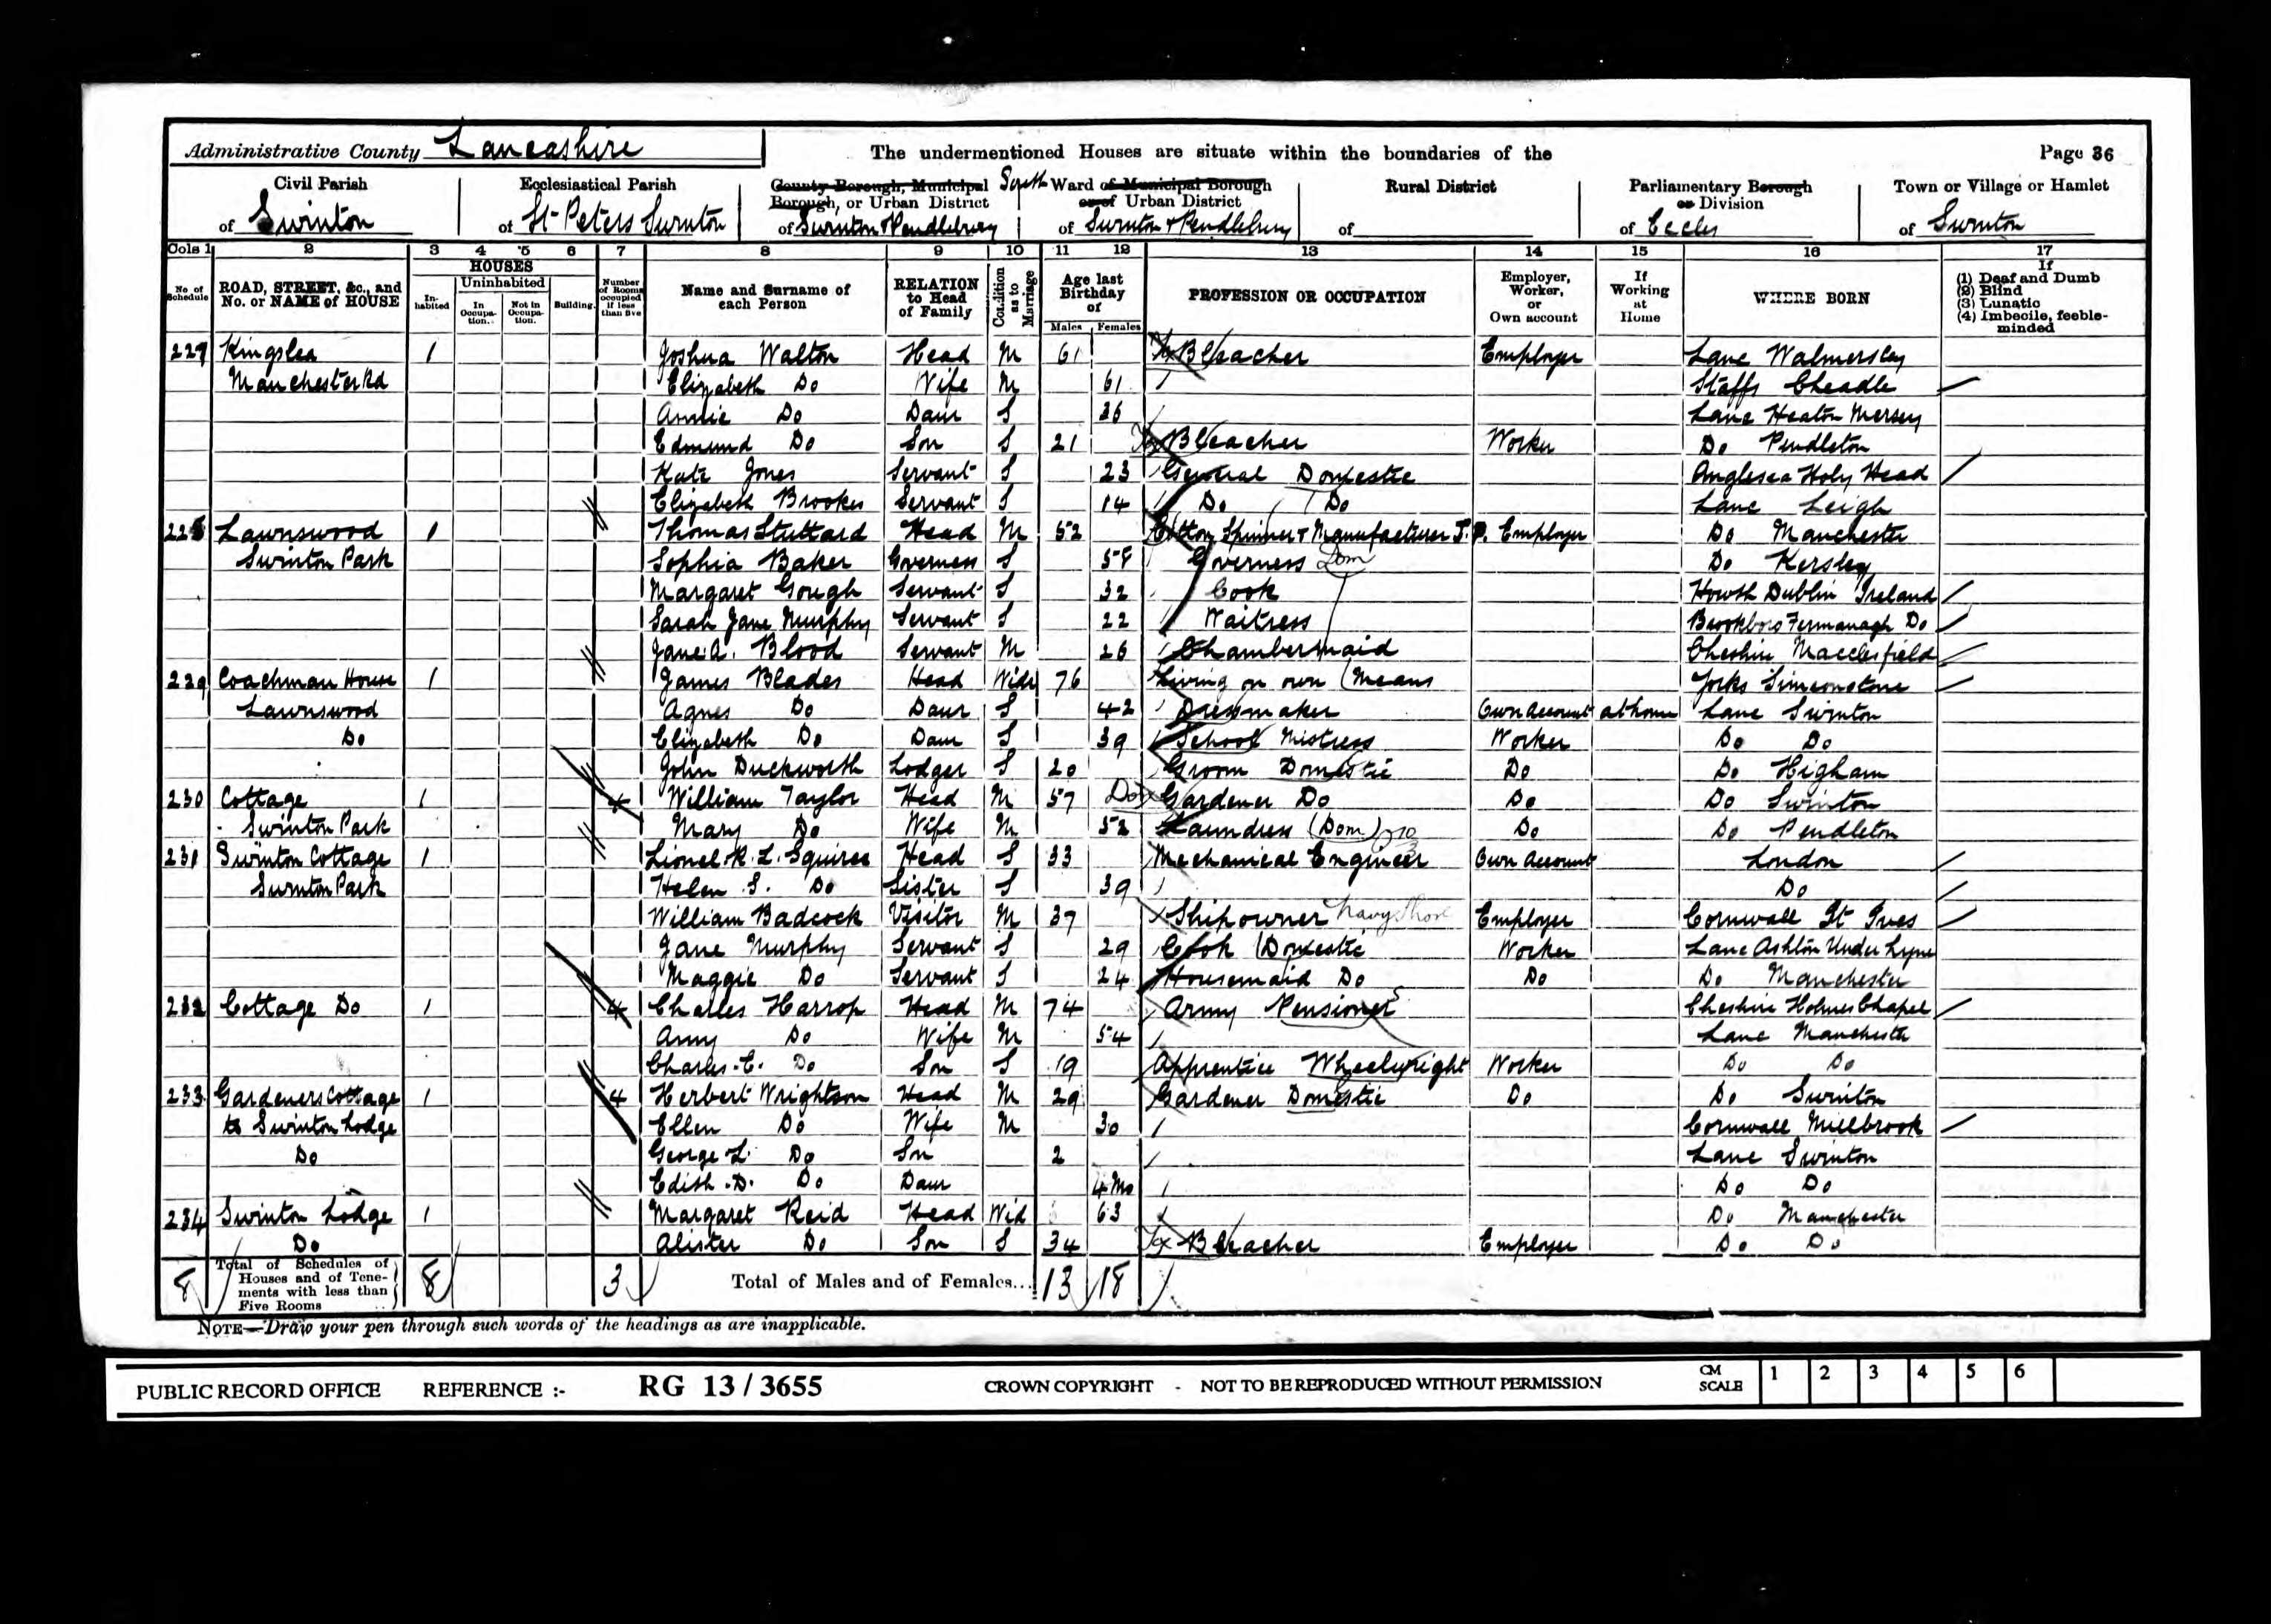 Administrative County Lancashire The undermentioned Houses are situate within the boundaries of the Page 36
Civil Parish of Swinton
Ecclesiastical Parish of St Peters Swinton
County Borough, Municipal Borough, or Urban District of Swinton & Pendlebury
South Ward of Municipal Borough or of Urban District of Swinton & Pendlebury
Rural District of
Parliamentary Borough or Division of Eccles
Town or Village or Hamlet of Swinton
Cols 1 2 3 4 5 6 7 8 9 10 11 12 13 14 15 16 17
No of Schedule
ROAD, STREET, &c., and No. or NAME of HOUSE
HOUSES
In-habited
Uninhabited
In Occupa-tion.
Not in Occupa-tion.
Building.
Number of Rooms occupied if less than five
Name and Surname of each Person
RELATION to Head of Family
Condition as to Marriage
Age last Birthday of
Males Females
PROFESSION OR OCCUPATION
Employer, Worker, or Own account
If Working at Home
WHERE BORN
If
(1) Deaf and Dumb
(2) Blind
(3) Lunatic
(4) Imbecile, feeble-minded
227 Kingslea 1 Joshua Walton Head M 61 Bleacher Employer Lanc Walmersley
Manchester Rd Elizabeth Do Wife M 61 Staffs Cheadle
Annie Do Daur S 36 Lanc Heaton Mersey
Edmund Do Son S 21 Bleacher Worker Do Pendleton
Kate Jones Servant S 23 General Domestic Anglesea Holy Head
Elizabeth Brookes Servant S 14 Do Do Lanc Leigh
228 Lawnswood 1 Thomas Stuttard Head M 52 Cotton Spinner & Manufacturer J.P. Employer Do Manchester
Swinton Park Sophia Baker Governess S 58 Governess Dom Do Kersley
Margaret Gough Servant S 32 Cook Howth Dublin Ireland
Sarah Jane Murphy Servant S 22 Waitress Brookboro Fermanagh Do
Jane A. Blood Servant M 26 Chambermaid Cheshire Macclesfield
229 Coachman House 1 James Blades Head Widr 76 Living on own Means Yorks Simeonstone
Lawnswood Agnes Do Daur S 42 Dressmaker Own Account at home Lanc Swinton
Do Elizabeth Do Daur S 39 School Mistress Worker Do Do
John Duckworth Lodger S 20 Groom Domestic Do Do Higham
230 Cottage 1 4 William Taylor Head M 57 Dom Gardener Do Do Do Swinton
Swinton Park Mary Do Wife M 52 Laundress (Dom) Do Do Pendleton
231 Swinton Cottage 1 Lionel R. L. Squires Head S 33 Mechanical Engineer Own Account London
Swinton Park Helen S. Do Sister S 39 Do
William Badcock Visitor M 37 Shipowner Employer Cornwall St Ives
Jane Murphy Servant S 29 Cook Domestic Worker Lanc Ashton Under Lyne
Maggie Do Servant S 24 Housemaid Do Do Do Manchester
232 Cottage Do 1 4 Charles Harrop Head M 74 Army Pensioner Cheshire Holmes Chapel
Amy Do Wife M 54 Lanc Manchester
Charles. E. Do Son S 19 Apprentice Wheelwright Worker Do Do
233 Gardeners Cottage 1 4 Herbert Wrightson Head M 29 Gardener Domestic Do Do Swinton
to Swinton Lodge Ellen Do Wife M 30 Cornwall Millbrook
Do George L. Do Son 2 Lanc Swinton
Edith. D. Do Daur 4 Mo Do Do
234 Swinton Lodge 1 Margaret Reid Head Wid 63 Do Manchester
Do Alister Do Son S 34 Bleacher Employer Do Do
8 Total of Schedules of Houses and of Tene-ments with less than Five Rooms 8 3 Total of Males and of Females... 13 18
NOTE—Draw your pen through such words of the headings as are inapplicable.
PUBLIC RECORD OFFICE REFERENCE :- RG 13 / 3655 CROWN COPYRIGHT - NOT TO BE REPRODUCED WITHOUT PERMISSION CM SCALE 1 2 3 4 5 6